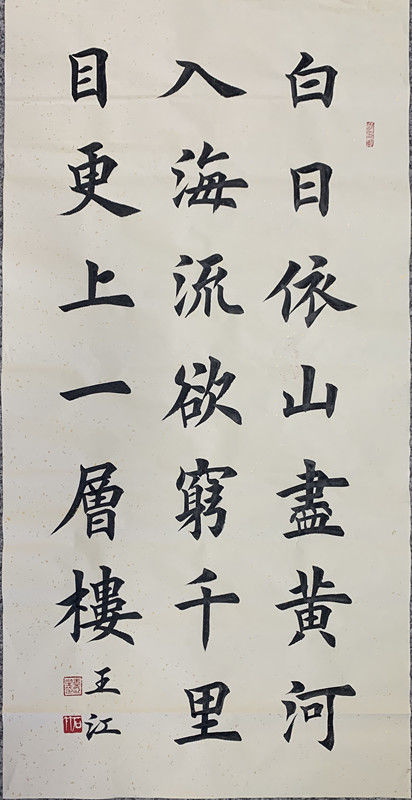 白日依山盡黄河
入海流欲窮千里
目更上一層樓
王江